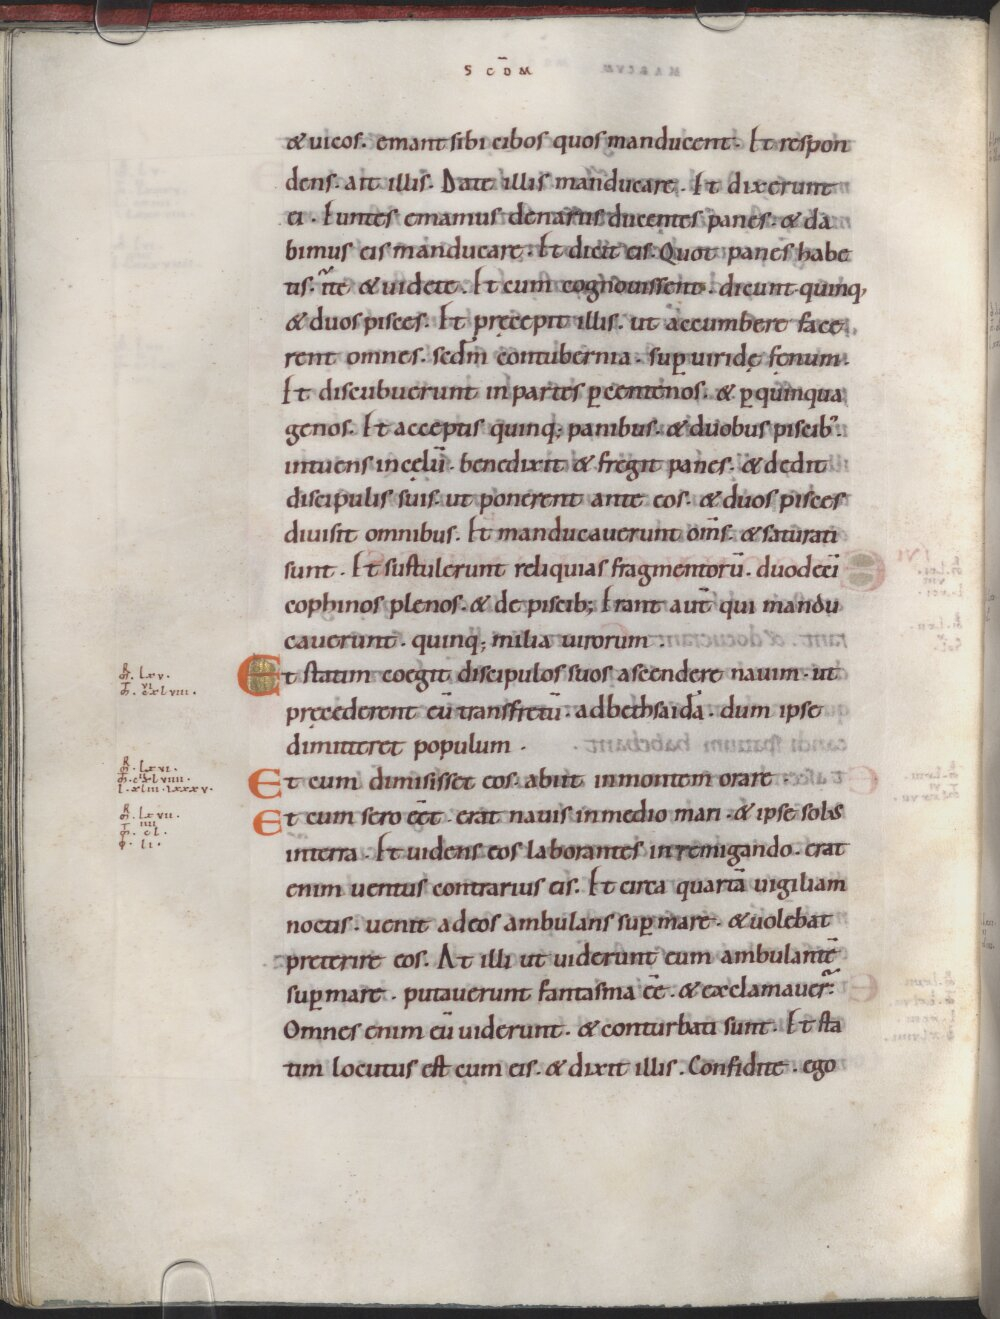 S CD̄M
& uicos. emant sibi cibos quos manducent. Et respon
dens. ait illis. Date illis manducare. Et dixerunt
ei. Euntes emamus denariis ducentes panes. & da
bimus eis manducare. Et dicit eis. Quot panes habe
tis. ite & uidete. Et cum cognouissent. dicunt. quinq;
& duos pisces. Et pręcepit illis. ut accumbere face
rent omnes. scdm̄ contubernia. sup̱ uiridę fęnum.
Et discubuerunt in partes p̱ centenos. & p̱ quinqua
genos. Et acceptis quinq; panibus. & duobus piscib'.
intuens in celū. benedixit & fregit panes. & dedit
discipulis suis. ut ponerent ante eos. & duos pisces
diuisit omnibus. Et manducauerunt om̄s. & saturati
sunt. Et sustulerunt reliquias fragmentorū. duodecī
cophinos plenos. & de piscib; Erant aut̄ qui mandu
cauerunt. quinq; milia uirorum.
Et statim coegit discipulos suos ascendere nauim. ut
pręcederent eū transfretū. ad bethsaida. dum ipse
dimitteret populum.
Et cum dimisisset eos. abiit in montem orare.
Et cum sero eēt. erat nauis in medio mari. & ipse solus
in terra. Et uidens eos laborantes in remigando. erat
enim uentus contrarius eis. Et circa quartā uigiliam
noctis. uenit ad eos ambulans sup̱ mare. & uolebat
preterire eos. At illi ut uiderunt eum ambulantē
sup̱ mare. putauerunt fantasma eē. & exclamauer̄.
Omnes enim eū uiderunt. & conturbati sunt. Et sta
tim locutus est cum eis. & dixit illis. Confidite. ego
lxv.
cxlviii.
lxvi.
lxvii.
cl.
li.